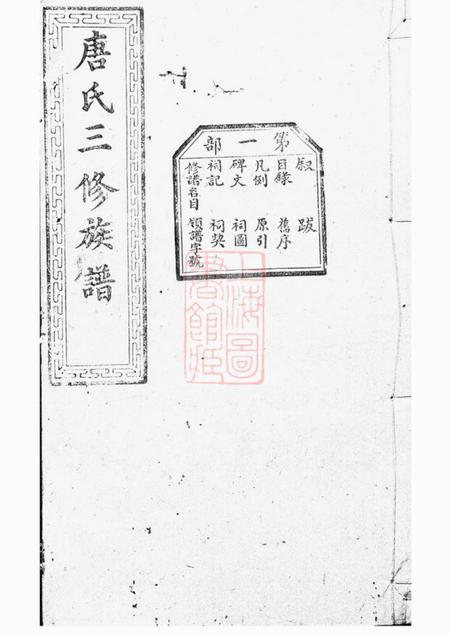 唐氏三修族譜
第一部
敍 跋
目錄 舊序
凡例 原引
碑文 祠圖
祠記 祠契
修譜名目 領譜字號
上海圖
書館藏